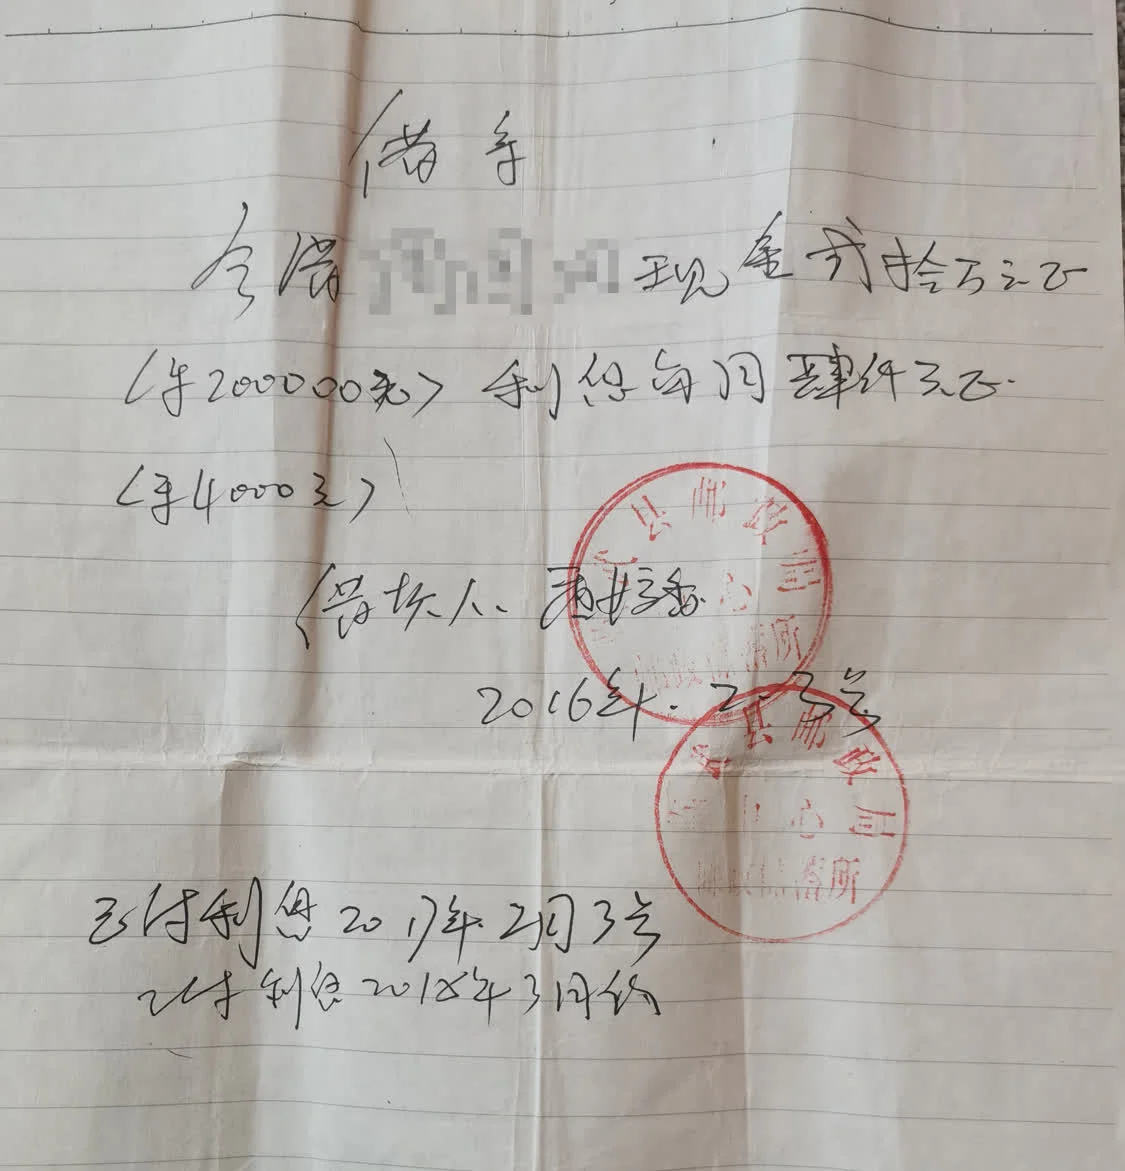 借条
今借 现金贰拾万元正
(¥200000元) 利息每月肆仟元正.
(¥4000元)
借款人:
2016年.2.3号
县邮政局
心
所
县邮政局
中心
储所
已付利息2017年2月3号
已付利息2018年3月份